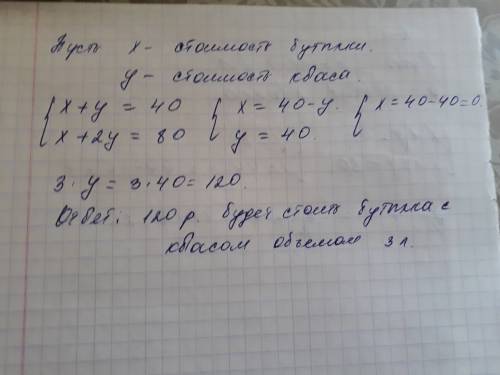 Пусть x - стоимость бутылки.
y - стоимость кваса.
{ x + y = 40 { x = 40 - y. { x = 40 - 40 = 0.
{ x + 2y = 80 { y = 40.
3 · y = 3 · 40 = 120.
Ответ: 120 р. будет стоить бутылка с
квасом объемом 3 л.